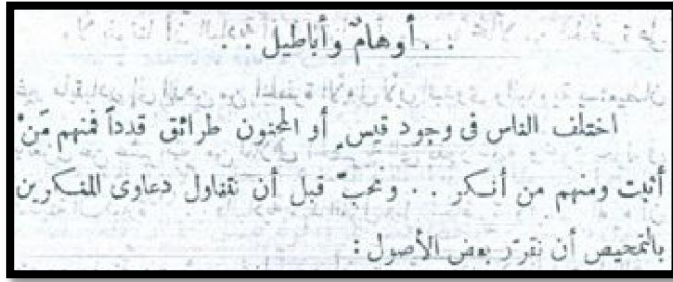 . . أوهامٌ وأباطيل . .
اختلف الناس فى وجود قيسٍ أو المجنون طرائق قدداً فمنهم مَنْ
أثبت ومنهم من أنكر . . ونحبّ قبل أن نتناول دعاوى المنكرين
بالتمحيص أن نقرّر بعض الأصول :